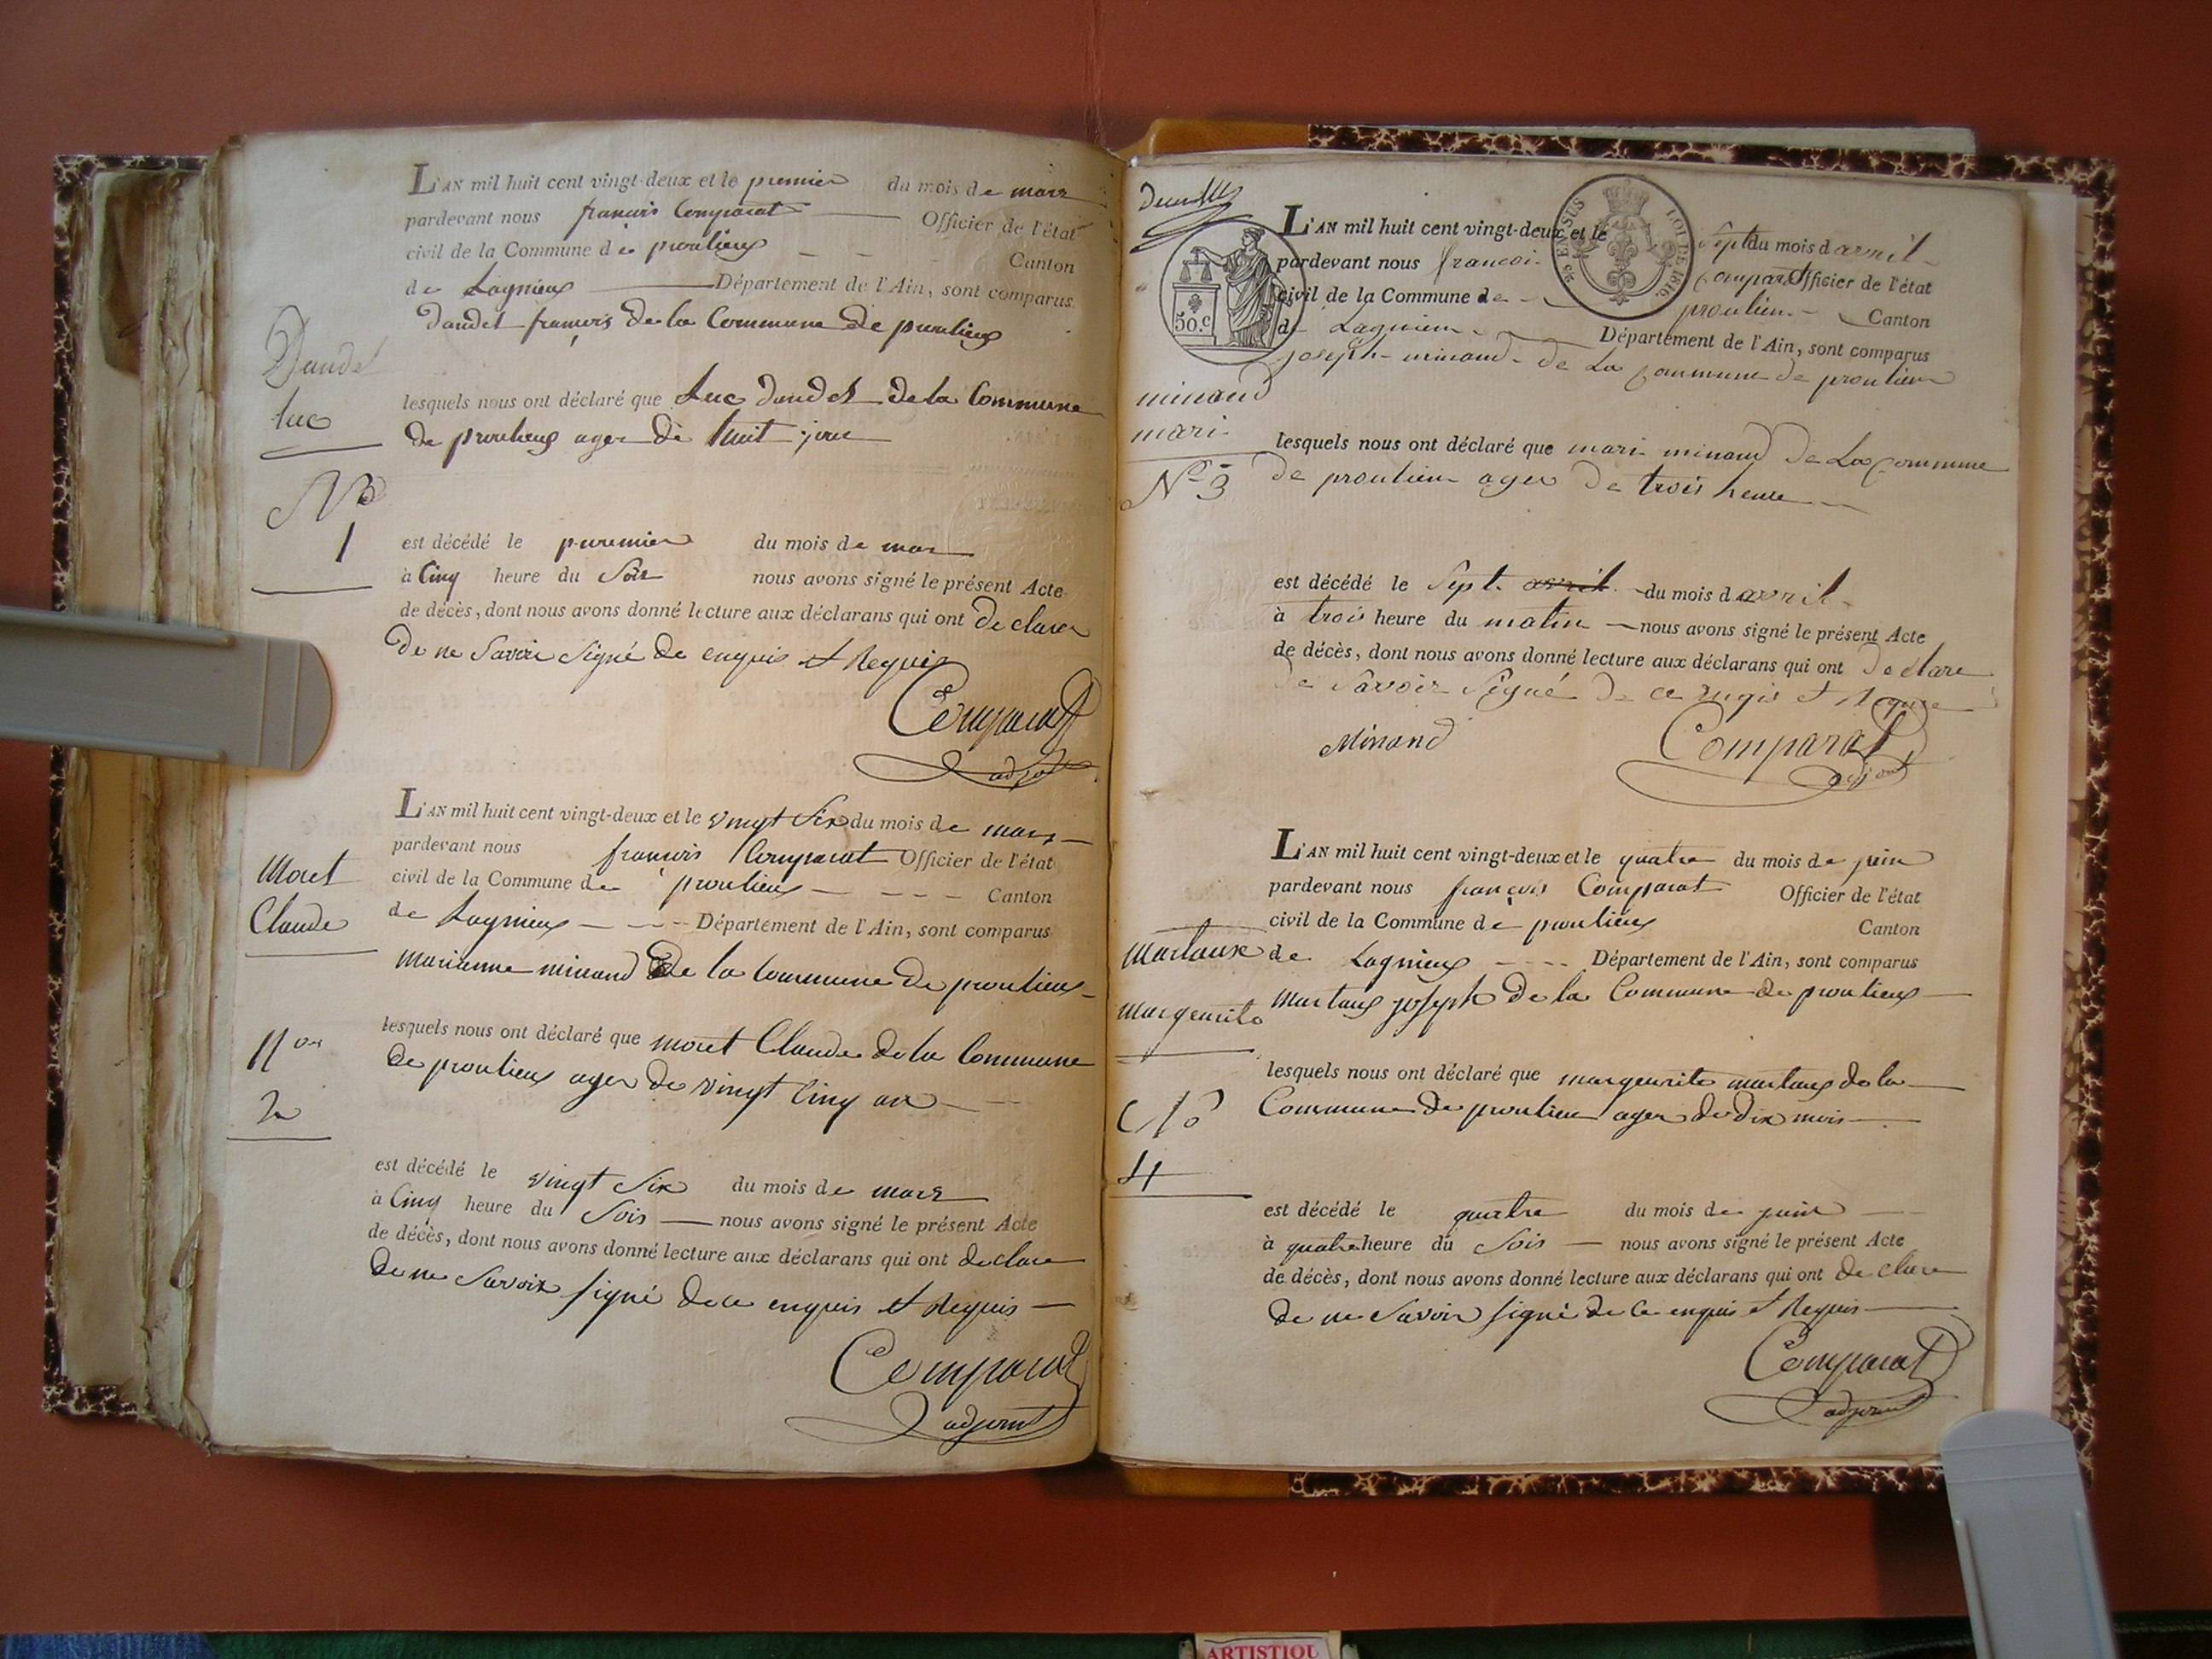 L'AN mil huit cent vingt-deux et le premier du mois de mars
pardevant nous francois Comparat Officier de l'état
civil de la Commune de proulieux Canton
de Lagnieux Département de l'Ain, sont comparus
Daudet francois de la Commune de proulieux
Daudet
luc
lesquels nous ont déclaré que Luc Daudet de la Commune
de proulieux ager de huit jour
No
1
est décédé le puremier du mois de mars
à Cinq heure du Soir nous avons signé le présent Acte
de décès, dont nous avons donné lecture aux déclarans qui ont declare
de ne Savoir Signé de enquis et Requis
Comparat
adjoint
L'AN mil huit cent vingt-deux et le vingt Six du mois de mars
pardevant nous francois Comparat Officier de l'état
civil de la Commune de proulieux Canton
de Lagnieux Département de l'Ain, sont comparus
Moret
Claude
marianne minand de la Commune de proulieux
lesquels nous ont déclaré que moret Claude de la Commune
de proulieux ager de vingt Cinq an
2
est décédé le vingt Six du mois de mars
à Cinq heure du Soir nous avons signé le présent Acte
de décès, dont nous avons donné lecture aux déclarans qui ont declare
de ne Savoir signé de ce enquis et Requis
Comparat
adjoint
L'AN mil huit cent vingt-deux et le Sept du mois d avril
pardevant nous francois Comparat Officier de l'état
civil de la Commune de proulieu Canton
de Lagnieu Département de l'Ain, sont comparus
joseph minand de La Commune de proulieu
5 EN SUS LOI DE 1816
50.c
minand
mari
No 3
lesquels nous ont déclaré que mari minand de La Commune
de proulieu ager de trois heure
est décédé le Sept avril du mois d avril
à trois heure du matin nous avons signé le présent Acte
de décès, dont nous avons donné lecture aux déclarans qui ont declare
de Savoir Signé de ce et
Minand
Comparat
adjoint
L'AN mil huit cent vingt-deux et le quatre du mois de juin
pardevant nous françois Comparat Officier de l'état
civil de la Commune de proulieux Canton
de Lagnieux Département de l'Ain, sont comparus
martaux joseph de la Commune de proulieux
Martaux
Margeurite
lesquels nous ont déclaré que margeurite martaux de la
Commune de proulieu ager de dix mois
No
4
est décédé le quatre du mois de juin
à quatre heure du Soir nous avons signé le présent Acte
de décès, dont nous avons donné lecture aux déclarans qui ont declare
de ne Savoir signé de Ce enquis et Requis
Comparat
adjoint
ARTISTIQU